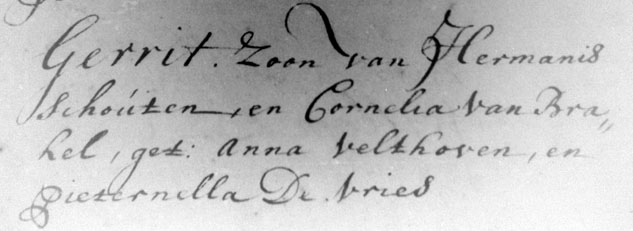 Gerrit. Zoon van Hermanis
Schoúten, en Cornelia van Bra„
kel, get: Anna Velthoven, en
Pieternella De Vries